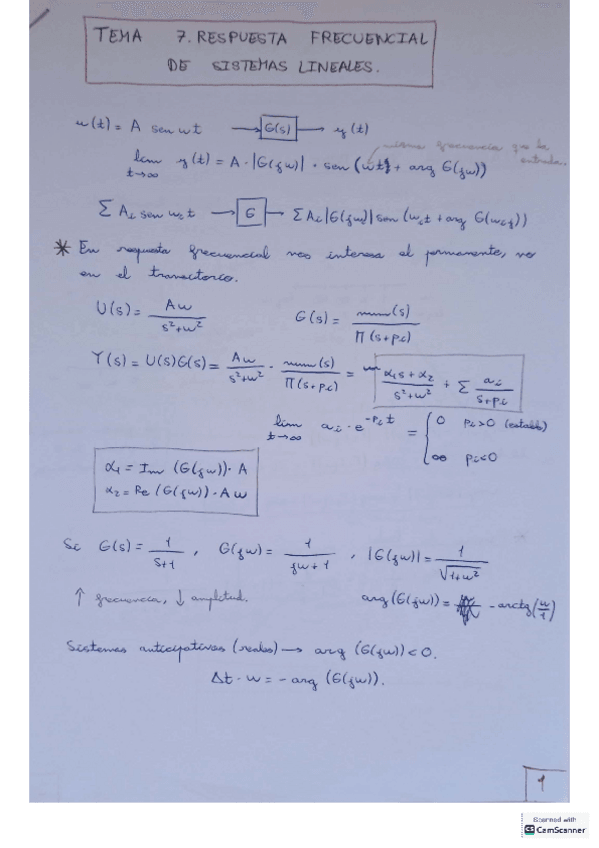 TEMA 7. RESPUESTA FRECUENCIAL
DE SISTEMAS LINEALES.
u(t) = A sen wt → G(s) → y(t)
misma frecuencia que la entrada.
lim t→∞ y(t) = A · |G(jw)| · sen (wt + arg G(jw))
Σ Ai sen wit → G → Σ Ai |G(jw)| sen (wit + arg G(wij))
* En respuesta frecuencial nos interesa el permanente, no
en el transitorio.
U(s) = Aw / s²+w²   G(s) = num(s) / Π (s+pi)
Y(s) = U(s)G(s) = Aw / s²+w² · num(s) / Π (s+pi) = α₁s + α₂ / s²+w² + Σ ai / s+pi
lim t→∞ ai · e^-pit = { 0 pi>0 (estable)
∞ pi<0
α₁ = Im (G(jw)) · A
α₂ = Re (G(jw)) · Aw
Si G(s) = 1 / s+1 , G(jw) = 1 / jw+1 , |G(jw)| = 1 / √1+w²
↑ frecuencia, ↓ amplitud.   arg (G(jw)) = - arctg (w/1)
Sistemas anticipativos (reales) → arg (G(jw)) < 0.
Δt · w = - arg (G(jw)).
1
Scanned with
CS CamScanner